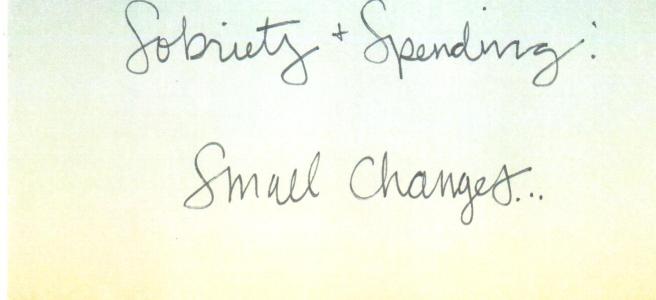 Sobriety + Spending:
Small Changes...